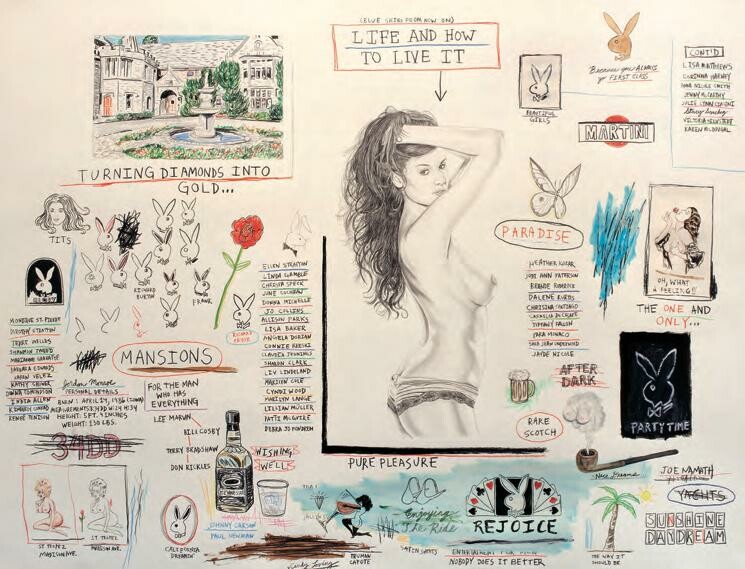 (BLUE SKIES FROM NOW ON)
LIFE AND HOW
TO LIVE IT
TURNING DIAMONDS INTO
GOLD...
TITS
RICHARD
BURTON
FRANK
RICHARD
PRYOR
MANSIONS
Jordan Monroe
PERSONAL DETAILS
BORN: APRIL 19, 1986 (IOWA)
HEIGHT: 5FT. 9 INCHES
WEIGHT: 130 LBS.
34DD
TERRI WELLES
BARBARA EDWARDS
KAREN VELEZ
KATHY SHOWER
DONNA EDMONDSON
INDIA ALLEN
KIMBERLEY CONRAD
RENEE TENISON
ELLEN STRATTON
LINDA GAMBLE
CHRISTA SPECK
JUNE COCHRAN
DONNA MICHELLE
JO COLLINS
ALLISON PARKS
LISA BAKER
ANGELA DORIAN
CONNIE KRESKI
CLAUDIA JENNINGS
SHARON CLARK
LIV LINDELAND
MARILYN COLE
CYNDI WOOD
MARILYN LANGE
LILLIAN MÜLLER
PATTI MCGUIRE
DEBRA JO FONDREN
FOR THE MAN
WHO HAS
EVERYTHING
LEE MARVIN
BILL COSBY
TERRY BRADSHAW
DON RICKLES
WISHING
WELL
JOHNNY CARSON
PAUL NEWMAN
ST. TROPEZ
MADISON AVE.
ST. TROPEZ
MADISON AVE.
CALIFORNIA
DREAMIN'
PURE PLEASURE
TRUMAN
CAPOTE
Enjoying
The Ride
SATIN SHEETS
REJOICE
ENTERTAINMENT FOR MEN
NOBODY DOES IT BETTER
BEAUTIFUL
GIRLS
Because you ALWAYS
go FIRST CLASS
MARTINI
CONT'D
LISA MATTHEWS
CORINNA HARNEY
ANNA NICOLE SMITH
JENNY MCCARTHY
JULIE LYNN CIALINI
Stacy Sanchez
VICTORIA SILVSTEDT
KAREN MCDOUGAL
PARADISE
HEATHER KOZAR
JODI ANN PATERSON
BRANDE RODERICK
DALENE KURTIS
CHRISTINA SANTIAGO
CARMELLA DECESARE
TIFFANY FALLON
KARA MONACO
SARA JEAN UNDERWOOD
JAYDE NICOLE
AFTER
DARK
RARE
SCOTCH
OH, WHAT
A FEELING!!
THE ONE AND
ONLY...
PARTY TIME
Nice Dreams
JOE NAMATH
YACHTS
SUNSHINE
DAYDREAM
THE WAY IT
SHOULD BE